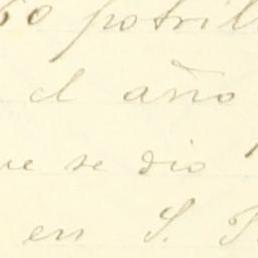 60 potrill
el año
ue se dio
en S.